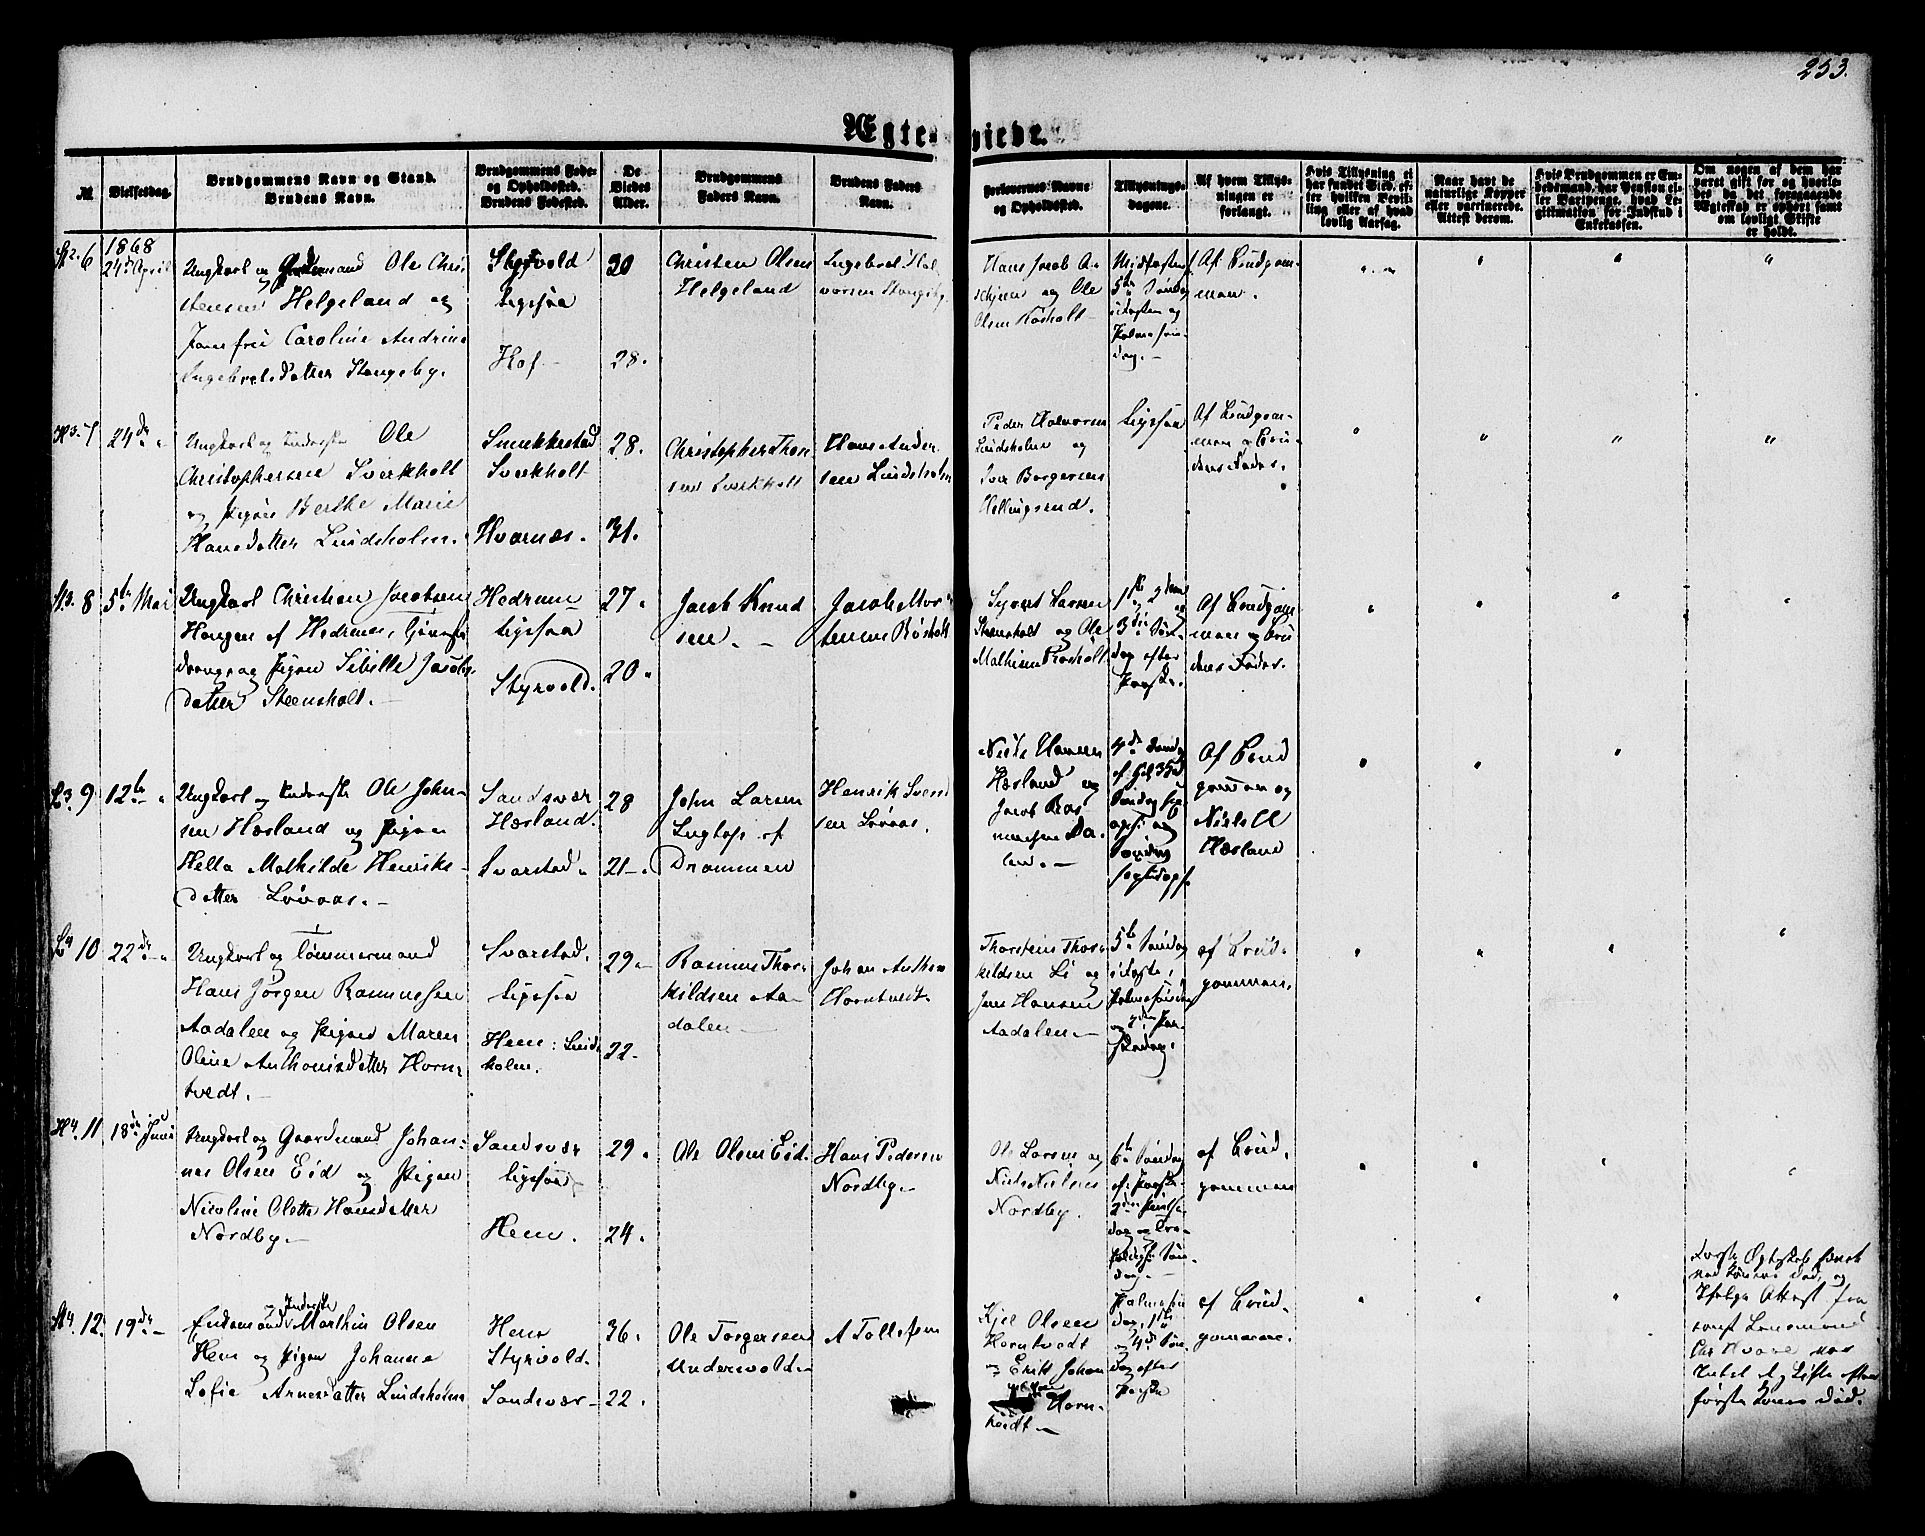 253.
Ægteviede.
№
Vielsesdag.
Brudgommens Navn og Stand.
Brudens Navn.
Brudgommens Føde-
og Opholdssted.
Brudens Fødested.
De
Viedes
Alder.
Brudgommens
Faders Navn.
Brudens Faders
Navn.
Forlovernes Navne
og Opholdssted.
Tillysnings-
dagene.
Af hvem Tillys-
ningen er
forlangt.
Hvis Tillysning ei
har fundet Sted, ef-
ter hvilken Bevil-
ling eller af hvad
lovlig Aarsag.
Naar havt de
naturlige Kopper
eller vaccinerede.
Attest derom.
Hvis Brudgommen er Em-
bedsmand, har Pension el-
ler Vartpenge, hvad Le-
gitimation for Indskud i
Enkekassen.
Om nogen af dem har
været gift før og hvorle-
des da det foregaaende
Ægteskab er ophørt samt
om lovligt Skifte
er holdt.
6
1868
24de April
Ungkarl og Gaardmand Ole Chri-
stensen Helgeland og
Jomfru Caroline Andrine
Ingebretsdatter Stangeby.
Styrvold
Ligsaa
Hof
30
28.
Christen Olsen
Helgeland
Ingebret Hal-
vorsen Stangeby
Hans Jacob
og Ole
Olsen Røsholt
Midfaste
5te Søndag
i Fasten og
Palmesøn-
dag.
Af Brudgom-
men.
7
24de
Ungkarl og Inderste Ole
Christophersen Sverkholt
og Pigen Berthe Marie
Hansdatter Lindsholm.
Smukkestad
Sverkholt
Hvarnæs.
28.
31.
Christopher Thor-
sen Sverkholt
Hans Ander-
sen Lindsholm
Peder Halvorsen
Lindsholm og
Iver Borgersen
Hellingsrud.
Ligsaa
Af Brudgom-
men og Bru-
dens Fader.
8
5te Mai
Ungkarl Christian Jacobsen
Haugen af Hedrum, Tjeneste-
dreng og Pigen Sibille Jacobs-
datter Steensholt.
Hedrum
Ligsaa
Styrvold.
27.
20.
Jacob Knud
sen.
Jacob Mor-
tensen Røsholt
Syvert Larsen
Steensholt og Ole
Mathisen Røsholt
1ste 2den
og
3die Søn-
dag efter
Paaske.
Af Brudgom
men og Bru
dens Fader.
9
12te
Ungkarl og Inderste Ole John-
sen Hæsland og Pigen
Hella Mathilde Henriks-
datter Løvaas.
Sandsvær
Hæsland.
Svarstad.
28
21.
John Larsen
Lugtop af
Drammen
Henrik Svend
sen Løvaas.
Niels Hansen
Hæsland og
Jacob Ras
mussen Da-
len.
4de Søndag
Søndag
og
Søndag
Af Brud
gommen og
Niels
Hæsland
10
22de
Ungkarl og Tømmermand
Hans Jørgen Rasmussen
Aadalen og Pigen Maren
Oline Anthonisdatter Horn-
tvedt.
Svarstad.
Ligsaa
Hem: Lind-
holm.
29
22
Rasmus Thor-
kildsen Aa-
dalen
Johan Anthon
Horntvedt.
Thorstein Thor-
kildsen Li og
Jens Hansen
Aadalen.
5te Søndag
i Faste,
Palmesøndag
og 2den Paa-
skedag.
af Brud-
gommen.
11
18de Juni
Ungkarl og Gaardmand Johan-
nes Olsen Eid og Pigen
Nicoline Olette Hansdatter
Nordby.
Sandsvær
Ligsaa
Hem.
29.
24.
Ole Olsen Eid.
Hans Pedersen
Nordby
Ole Larsen og
Niels Nielsen
Nordby.
6te Søndag
ef. Paaske
2den Pintse-
dag og
Søn-
dag.
af Brud-
gommen
12.
19de
Enkemand og Inderste Mathis Olsen
Hem og Pigen Johanne
Sofie Arnesdatter Lindsholm
Hem
Styrvold.
Sandsvær
36.
22.
Ole Torgersen
Undervold
A Tollefsen
Kjel Olsen
Horntvedt
og Erik Johan
Horn-
tvedt
Palmesøn
dag, 1ste
og 4de Søn-
dag efter
Paaske
af Brud-
gommen.
Første Ægteskab hævet
ved Konens Død, og
ifølge Attest fra
Lensmand
Hvaara var
Intet at Skifte efter
første Kones Død.